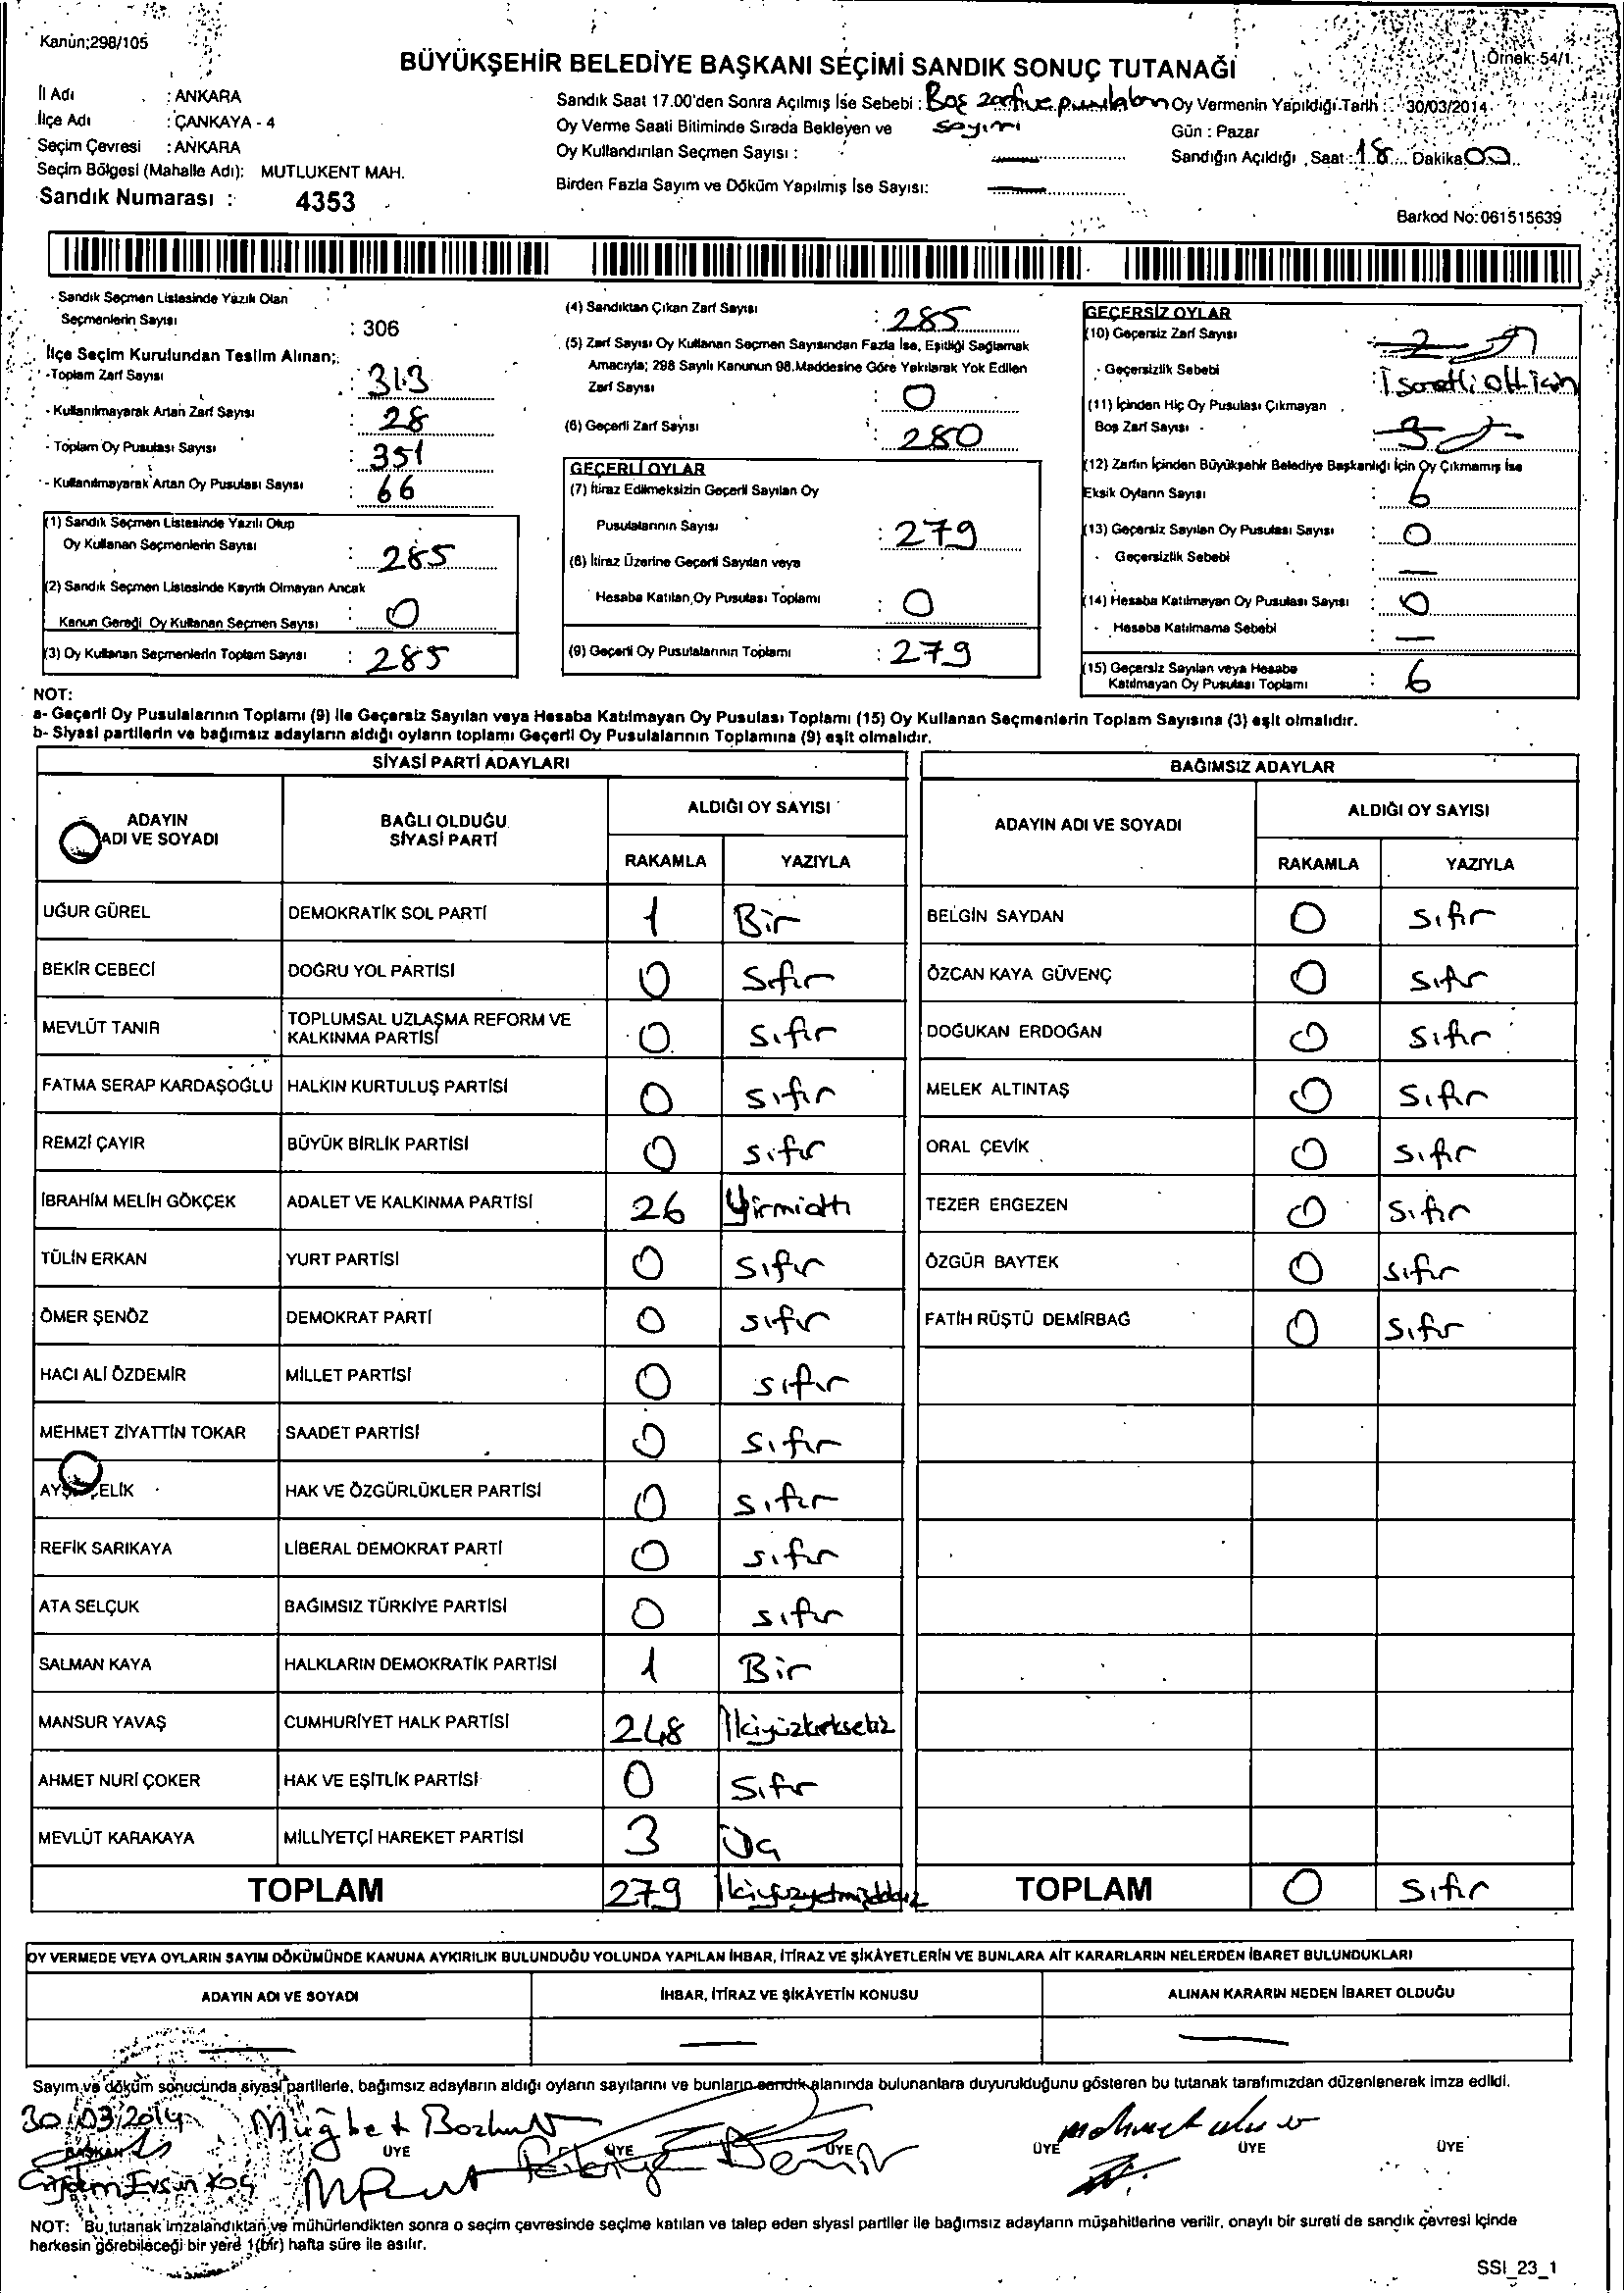 Kanun:298/105
Örnek: 54/1
BÜYÜKŞEHİR BELEDİYE BAŞKANI SEÇİMİ SANDIK SONUÇ TUTANAĞI
İl Adı : ANKARA
İlçe Adı : ÇANKAYA - 4
Seçim Çevresi : ANKARA
Seçim Bölgesi (Mahalle Adı): MUTLUKENT MAH.
Sandık Numarası : 4353
Sandık Saat 17.00'den Sonra Açılmış İse Sebebi : Boş zarf ve pusulaların
Oy Verme Saati Bitiminde Sırada Bekleyen ve sayımı
Oy Kullandırılan Seçmen Sayısı : —
Birden Fazla Sayım ve Döküm Yapılmış İse Sayısı: —
Oy Vermenin Yapıldığı Tarih : 30/03/2014
Gün : Pazar
Sandığın Açıldığı Saat : 18 Dakika 00
Barkod No: 061515639
Sandık Seçmen Listesinde Yazılı Olan
Seçmenlerin Sayısı : 306
İlçe Seçim Kurulundan Teslim Alınan;
-Toplam Zarf Sayısı : 313
- Kullanılmayarak Artan Zarf Sayısı : 28
- Toplam Oy Pusulası Sayısı : 351
- Kullanılmayarak Artan Oy Pusulası Sayısı : 66
(1) Sandık Seçmen Listesinde Yazılı Olup
Oy Kullanan Seçmenlerin Sayısı : 285
(2) Sandık Seçmen Listesinde Kayıtlı Olmayan Ancak
Kanun Gereği Oy Kullanan Seçmen Sayısı : 0
(3) Oy Kullanan Seçmenlerin Toplam Sayısı : 285
(4) Sandıktan Çıkan Zarf Sayısı : 285
(5) Zarf Sayısı Oy Kullanan Seçmen Sayısından Fazla İse, Eşitliği Sağlamak
Amacıyla; 298 Sayılı Kanunun 98.Maddesine Göre Yakılarak Yok Edilen
Zarf Sayısı : 0
(6) Geçerli Zarf Sayısı : 280
GEÇERLİ OYLAR
(7) İtiraz Edilmeksizin Geçerli Sayılan Oy
Pusulalarının Sayısı : 279
(8) İtiraz Üzerine Geçerli Sayılan veya
Hesaba Katılan Oy Pusulası Toplamı : 0
(9) Geçerli Oy Pusulalarının Toplamı : 279
GEÇERSİZ OYLAR
(10) Geçersiz Zarf Sayısı 2
- Geçersizlik Sebebi İşaretli olt için
(11) İçinden Hiç Oy Pusulası Çıkmayan
Boş Zarf Sayısı 3
(12) Zarfın İçinden Büyükşehir Belediye Başkanlığı İçin Oy Çıkmamış İse
Eksik Oyların Sayısı : 6
(13) Geçersiz Sayılan Oy Pusulası Sayısı : 0
- Geçersizlik Sebebi : —
(14) Hesaba Katılmayan Oy Pusulası Sayısı : 0
- Hesaba Katılmama Sebebi : —
(15) Geçersiz Sayılan veya Hesaba
Katılmayan Oy Pusulası Toplamı : 6
NOT:
a- Geçerli Oy Pusulalarının Toplamı (9) ile Geçersiz Sayılan veya Hesaba Katılmayan Oy Pusulası Toplamı (15) Oy Kullanan Seçmenlerin Toplam Sayısına (3) eşit olmalıdır.
b- Siyasi partilerin ve bağımsız adayların aldığı oyların toplamı Geçerli Oy Pusulalarının Toplamına (9) eşit olmalıdır.
SİYASİ PARTİ ADAYLARI
ADAYIN ADI VE SOYADI
BAĞLI OLDUĞU SİYASİ PARTİ
ALDIĞI OY SAYISI
RAKAMLA YAZIYLA
UĞUR GÜREL DEMOKRATİK SOL PARTİ 1 Bir
BEKİR CEBECİ DOĞRU YOL PARTİSİ 0 Sıfır
MEVLÜT TANIR TOPLUMSAL UZLAŞMA REFORM VE KALKINMA PARTİSİ 0 Sıfır
FATMA SERAP KARDAŞOĞLU HALKIN KURTULUŞ PARTİSİ 0 Sıfır
REMZİ ÇAYIR BÜYÜK BİRLİK PARTİSİ 0 Sıfır
İBRAHİM MELİH GÖKÇEK ADALET VE KALKINMA PARTİSİ 26 Yirmialtı
TÜLİN ERKAN YURT PARTİSİ 0 Sıfır
ÖMER ŞENÖZ DEMOKRAT PARTİ 0 Sıfır
HACI ALİ ÖZDEMİR MİLLET PARTİSİ 0 Sıfır
MEHMET ZİYATTİN TOKAR SAADET PARTİSİ 0 Sıfır
ÇELİK HAK VE ÖZGÜRLÜKLER PARTİSİ 0 Sıfır
REFİK SARIKAYA LİBERAL DEMOKRAT PARTİ 0 Sıfır
ATA SELÇUK BAĞIMSIZ TÜRKİYE PARTİSİ 0 Sıfır
SALMAN KAYA HALKLARIN DEMOKRATİK PARTİSİ 1 Bir
MANSUR YAVAŞ CUMHURİYET HALK PARTİSİ 248 İkiyüzkırksekiz
AHMET NURİ ÇOKER HAK VE EŞİTLİK PARTİSİ 0 Sıfır
MEVLÜT KARAKAYA MİLLİYETÇİ HAREKET PARTİSİ 3 Üç
TOPLAM 279 İkiyüzyetmişdokuz
BAĞIMSIZ ADAYLAR
ADAYIN ADI VE SOYADI
ALDIĞI OY SAYISI
RAKAMLA YAZIYLA
BELGİN SAYDAN 0 Sıfır
ÖZCAN KAYA GÜVENÇ 0 Sıfır
DOĞUKAN ERDOĞAN 0 Sıfır
MELEK ALTINTAŞ 0 Sıfır
ORAL ÇEVİK 0 Sıfır
TEZER ERGEZEN 0 Sıfır
ÖZGÜR BAYTEK 0 Sıfır
FATİH RÜŞTÜ DEMİRBAĞ 0 Sıfır
TOPLAM 0 Sıfır
OY VERMEDE VEYA OYLARIN SAYIM DÖKÜMÜNDE KANUNA AYKIRILIK BULUNDUĞU YOLUNDA YAPILAN İHBAR, İTİRAZ VE ŞİKÂYETLERİN VE BUNLARA AİT KARARLARIN NELERDEN İBARET BULUNDUKLARI
ADAYIN ADI VE SOYADI İHBAR, İTİRAZ VE ŞİKÂYETİN KONUSU ALINAN KARARIN NEDEN İBARET OLDUĞU
— — —
Sayım ve döküm sonucunda siyasi partilerle, bağımsız adayların aldığı oyların sayılarını ve bunların sandık alanında bulunanlara duyurulduğunu gösteren bu tutanak tarafımızdan düzenlenerek imza edildi.
30/03/2014 Müğbet Bozkurt
BAŞKAN ÜYE ÜYE ÜYE ÜYE ÜYE ÜYE
Çiğdem Ersin Koç Demir
NOT: Bu tutanak imzalandıktan ve mühürlendikten sonra o seçim çevresinde seçime katılan ve talep eden siyasi partiler ile bağımsız adayların müşahitlerine verilir, onaylı bir sureti de sandık çevresi içinde
herkesin görebileceği bir yere 1(bir) hafta süre ile asılır.
SSI_23_1